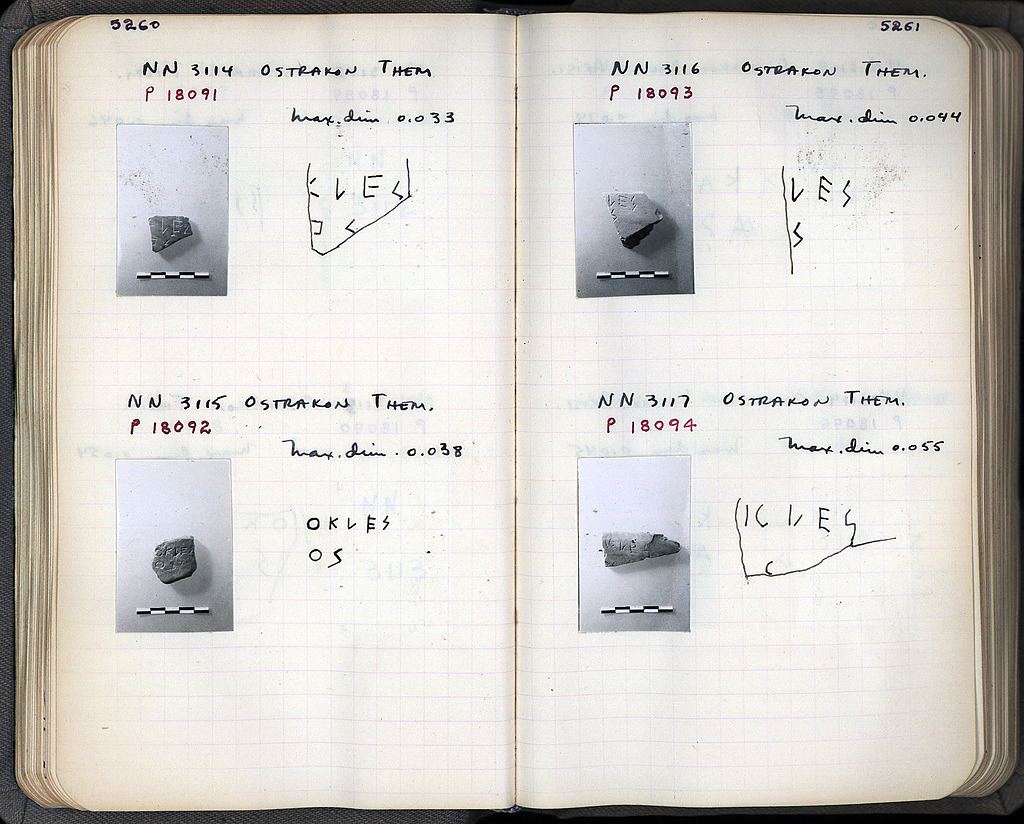 5260
NN 3114 OSTRAKON THEM
P 18091
Max. dim 0.033
KLES
OS
NN 3115 OSTRAKON THEM.
P 18092
Max. dim. 0.038
OKLES
OS
5261
NN 3116 OSTRAKON THEM.
P 18093
Max. dim 0.044
LES
S
NN 3117 OSTRAKON THEM.
P 18094
Max. dim 0.055
KLES